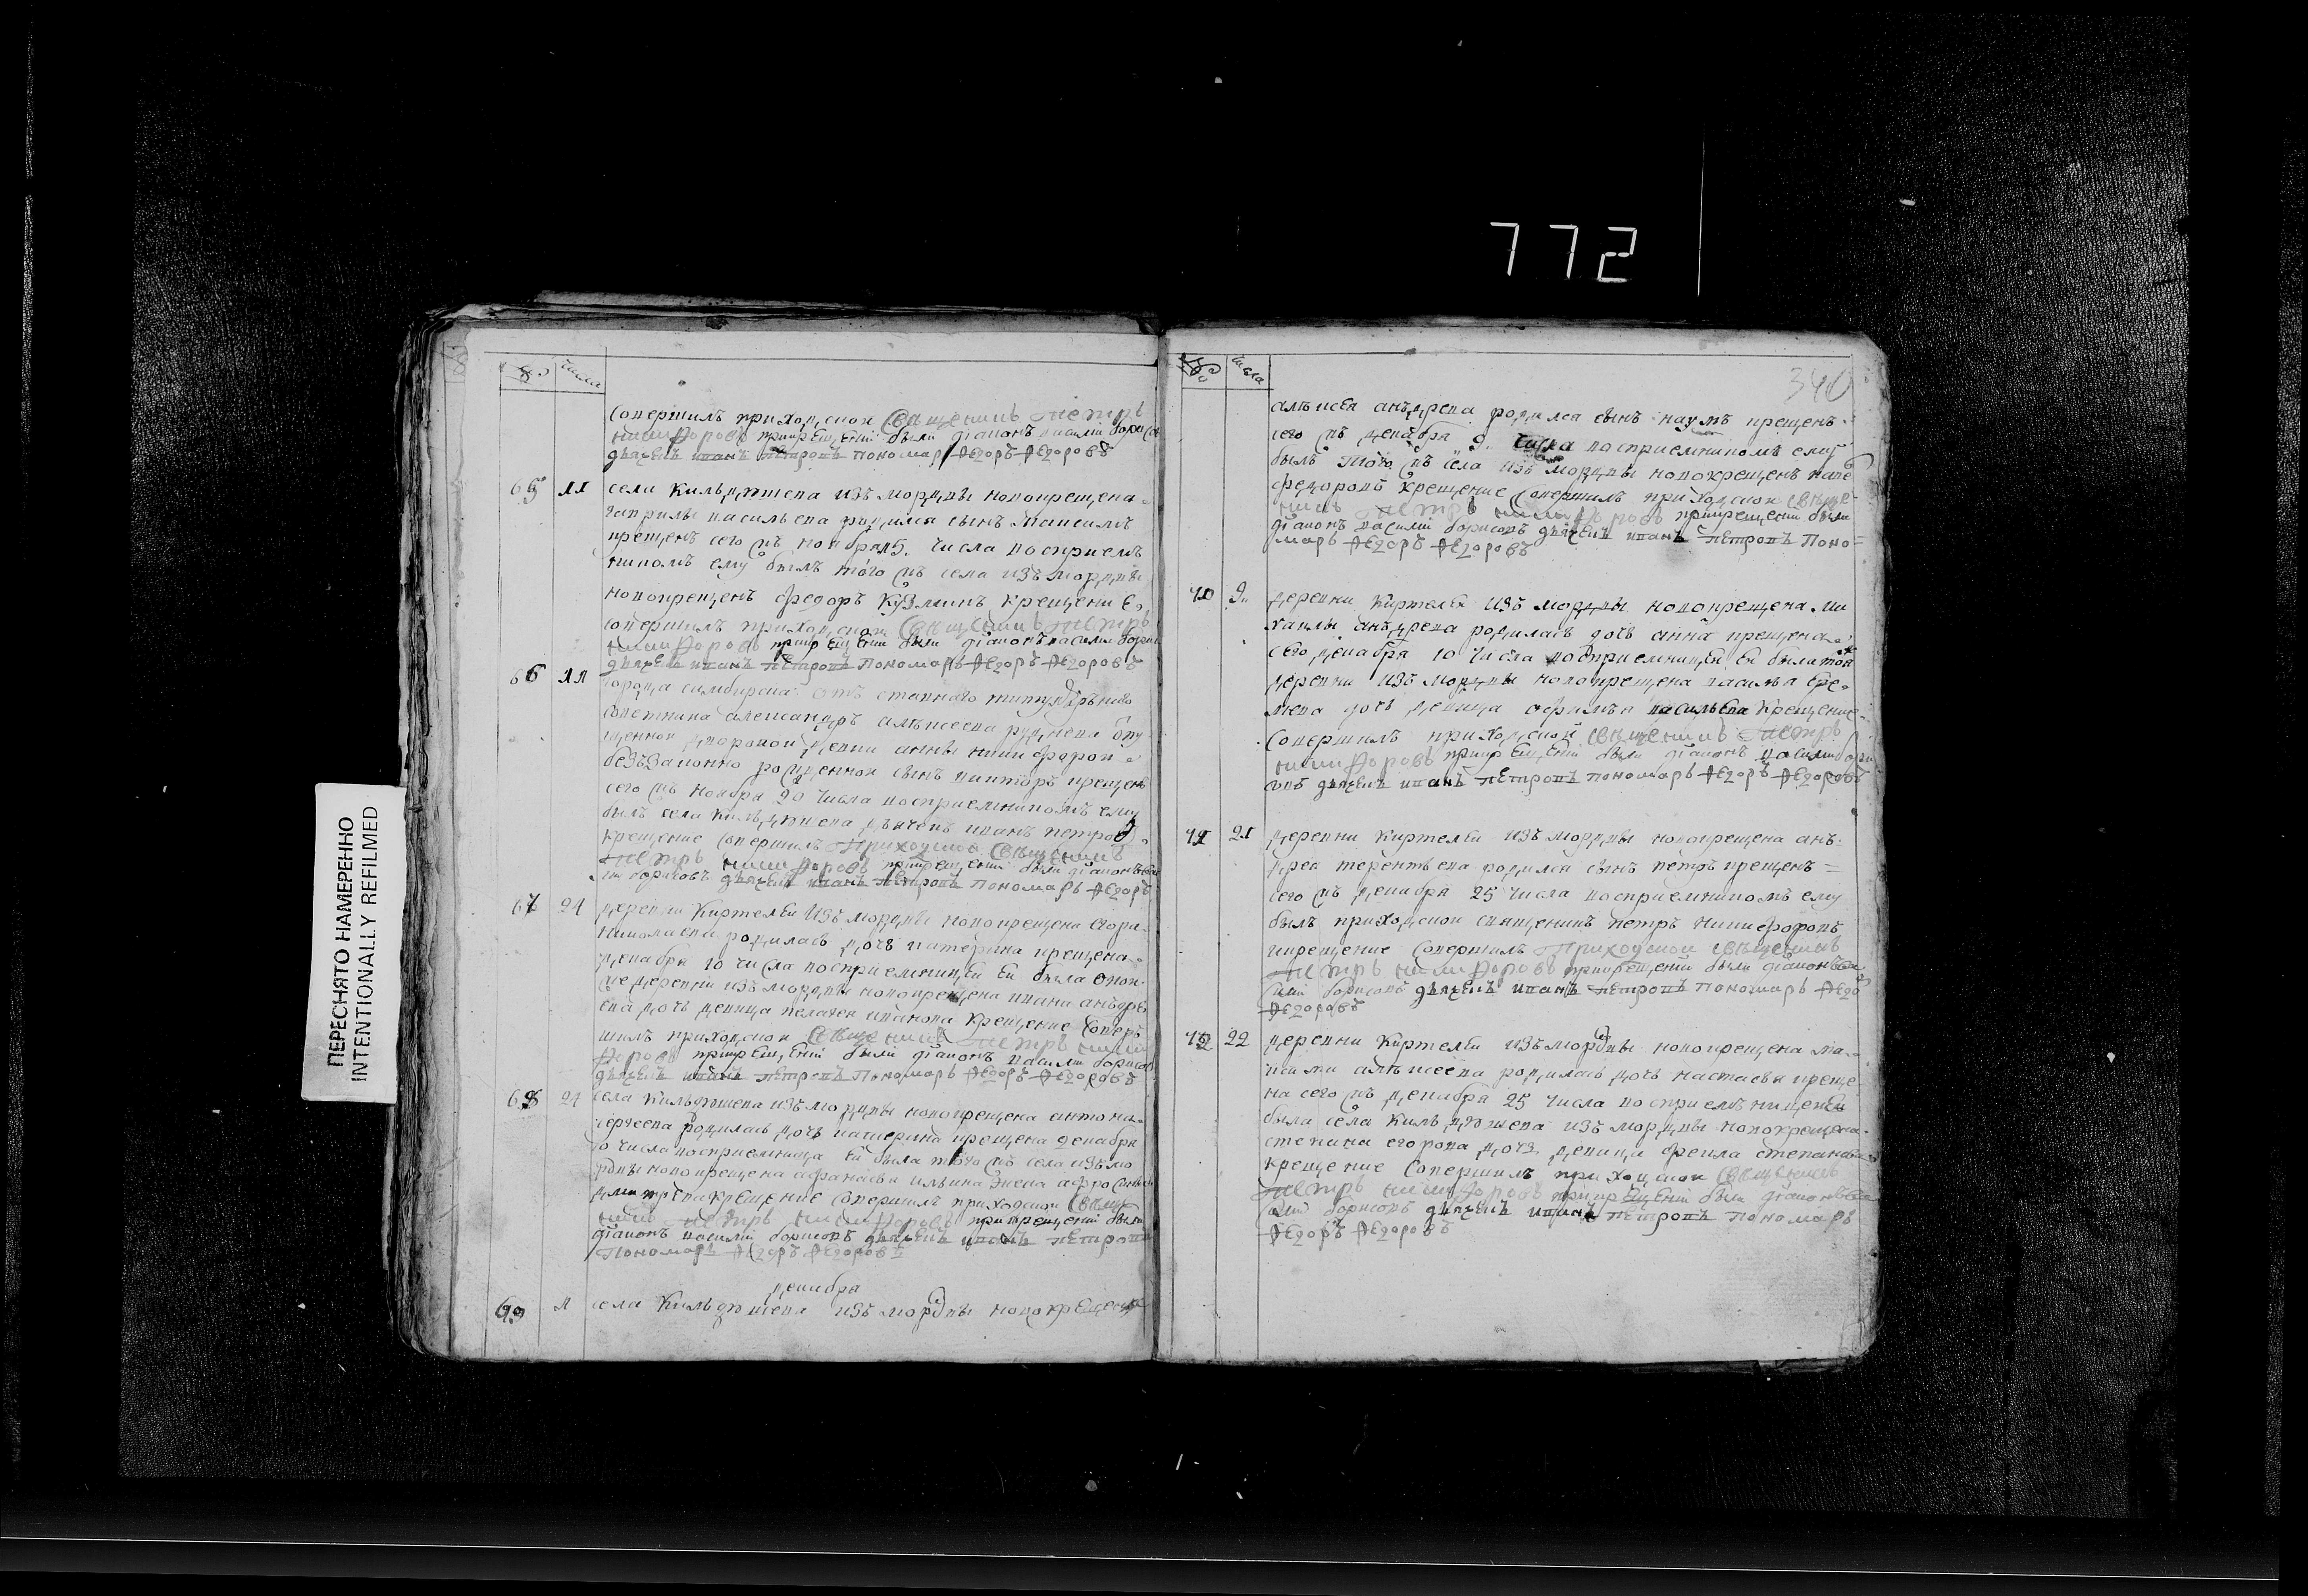 772
ПЕРЕСНЯТО НАМЕРЕННО
INTENTIONALLY REFILMED
№ числа
совершилъ приходской священникъ петръ
никифоровъ при крещении были дiаконъ василий борисовъ
дьячекъ иванъ петровъ пономарь федоръ федоровъ
65 11 села Кильдюшева изъ мордвы новокрещена
гаврилы васильева родился сынъ максимъ
крещенъ сего м҃ца ноября 15. числа восприем
никомъ ему былъ того м҃ъ села изъ мордвы
новокрещенъ федоръ Кузминъ крещение
совершилъ приходской священникъ петръ
никифоровъ при крещении были дiаконъ василий борисовъ
дьячекъ иванъ петровъ пономарь федоръ федоровъ
66 11 города симбирска отъ титулярнаго
советника александръ алексеева
дворовой девки анны никифоровой
беззаконно рожденной сынъ викторъ крещенъ
сего м҃ца ноября 20 числа восприемникомъ ему
былъ села Кильдюшева дьячекъ иванъ петровъ
крещение совершилъ приходской священникъ
петръ никифоровъ при крещении были дiаконъ
борисовъ дьячекъ иванъ петровъ пономарь федоръ
67 24 деревни Киртелеи изъ мордвы новокрещена
николаева родилась дочь катерина крещена
декабря 10 числа восприемницей ей была
деревни изъ мордвы новокрещена ивана андре
ева дочь девица пелагея иванова Крещение совер
шилъ приходской священникъ петръ ники
форовъ при крещении были дiаконъ василий борисовъ
дьячекъ иванъ петровъ пономарь федоръ федоровъ
68 24 села Кильдюшева изъ мордвы новокрещена антона
сергеева родилась дочь катерина крещена декабря
10 числа восприемница ей была того м҃ъ села изъ мо
рдвы новокрещена афанасья ильина жена
крещение совершилъ приходской священ
никъ петръ никифоровъ при крещении были
дiаконъ василий борисовъ дьячекъ иванъ петровъ
пономарь федоръ федоровъ
декабря
69 1 села Кильдюшева изъ мордвы новокрещена
№ числа
340
алексея андреева родился сынъ наумъ крещенъ
сего м҃ца декабря 9. числа восприемникомъ ему
былъ того м҃ъ села изъ мордвы новокрещенъ
федоровъ крещение совершилъ приходской священ
никъ петръ никифоровъ при крещении были
дiаконъ василий борисовъ дьячекъ иванъ петровъ поно
марь федоръ федоровъ
70 9 деревни Киртелеи изъ мордвы новокрещена ми
хаилы андреева родилась дочь анна крещена
сего декабря 10 числа восприемницей ей была той
деревни изъ мордвы новокрещена василья ере
меева дочь девица васильева крещение
совершилъ приходской священникъ петръ
никифоровъ при крещении были дiаконъ василий бори
совъ дьячекъ иванъ петровъ пономарь федоръ федоровъ
71 21 деревни Киртелеи изъ мордвы новокрещена ан
дрея терентьева родился сынъ петръ крещенъ
сего м҃ца декабря 25 числа восприемникомъ ему
былъ приходской священникъ петръ никифоровъ
и крещение совершилъ приходской священникъ
петръ никифоровъ при крещении были дiаконъ ва
силий борисовъ дьячекъ иванъ петровъ пономарь федоръ
федоровъ
72 22 деревни Киртелеи изъ мордвы новокрещена ма
алексеева родилась дочь настасья креще
на сего м҃ца декабря 25 числа восприемницей
была села Кильдюшева изъ мордвы новокрещена
степана егорова дочь девица фекла степанова
крещение совершилъ приходской священникъ
петръ никифоровъ при крещении были дiаконъ ва
силий борисовъ дьячекъ иванъ петровъ пономарь
федоръ федоровъ